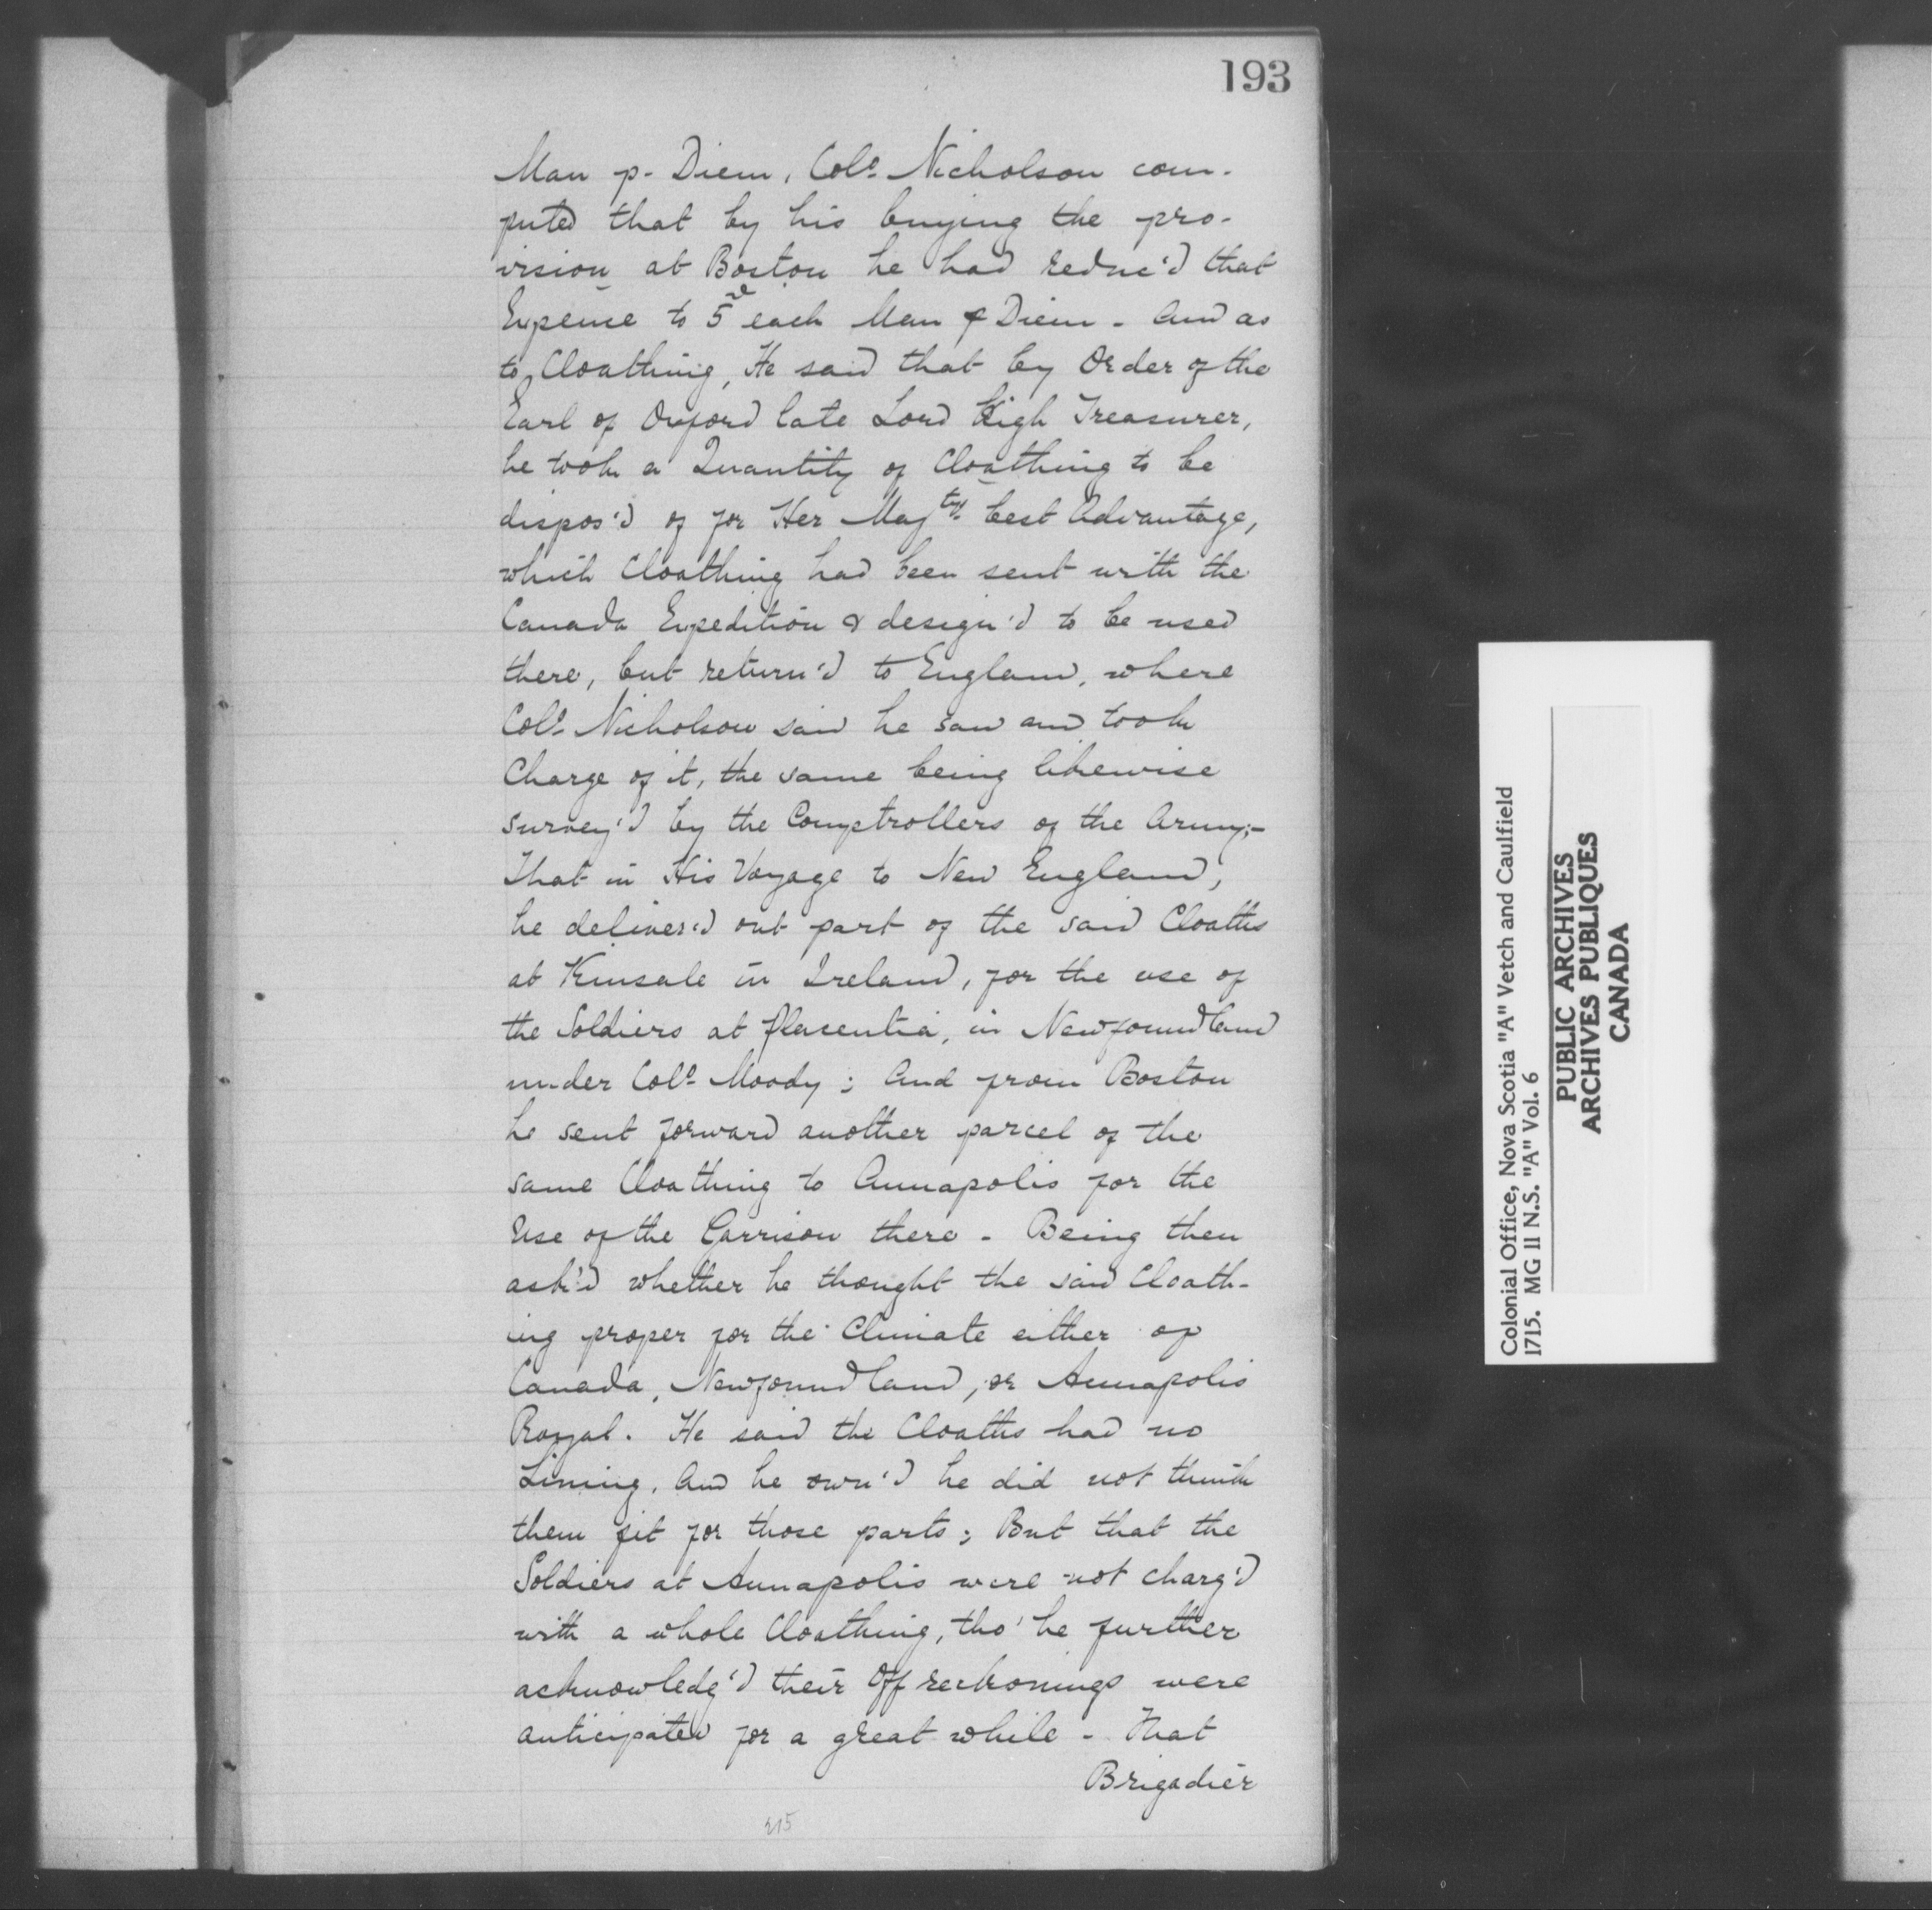 193
Man p. Diem, Colº Nicholson com-
puted that by his buying the pro-
vision at Boston he had reduc'd that
Expence to 5d each Man p Diem - And as
to Cloathing, He said that by Order of the
Earl of Oxford late Lord High Treasurer,
he took a Quantity of Cloathing to be
dispos'd of for Her Majtys best Advantage,
which Cloathing had been sent with the
Canada Expedition & design'd to be used
there, but return'd to England, where
Colº Nicholson said he saw and took
Charge of it, the same being likewise
survey'd by the Comptrollers of the Army;-
That in His Voyage to New England,
he deliver'd out part of the said Cloaths
at Kinsale in Ireland, for the use of
the Soldiers at Placentia, in Newfoundland
under Colº Moody; And from Boston
he sent forward another parcel of the
same Cloathing to Annapolis for the
Use of the Garrison there - Being then
ask'd whether he thought the said Cloath-
ing proper for the Climate either of
Canada, Newfoundland, or Annapolis
Royal. He said the Cloaths had no
Lining, And he own'd he did not think
them fit for those parts; But that the
Soldiers at Annapolis were not charg'd
with a whole Cloathing, tho' he further
acknowledg'd their Off reckonings were
anticipated for a great while - That
Brigadier
215
Colonial Office, Nova Scotia "A" Vetch and Caulfield
1715. MG 11 N.S. "A" Vol. 6
PUBLIC ARCHIVES
ARCHIVES PUBLIQUES
CANADA